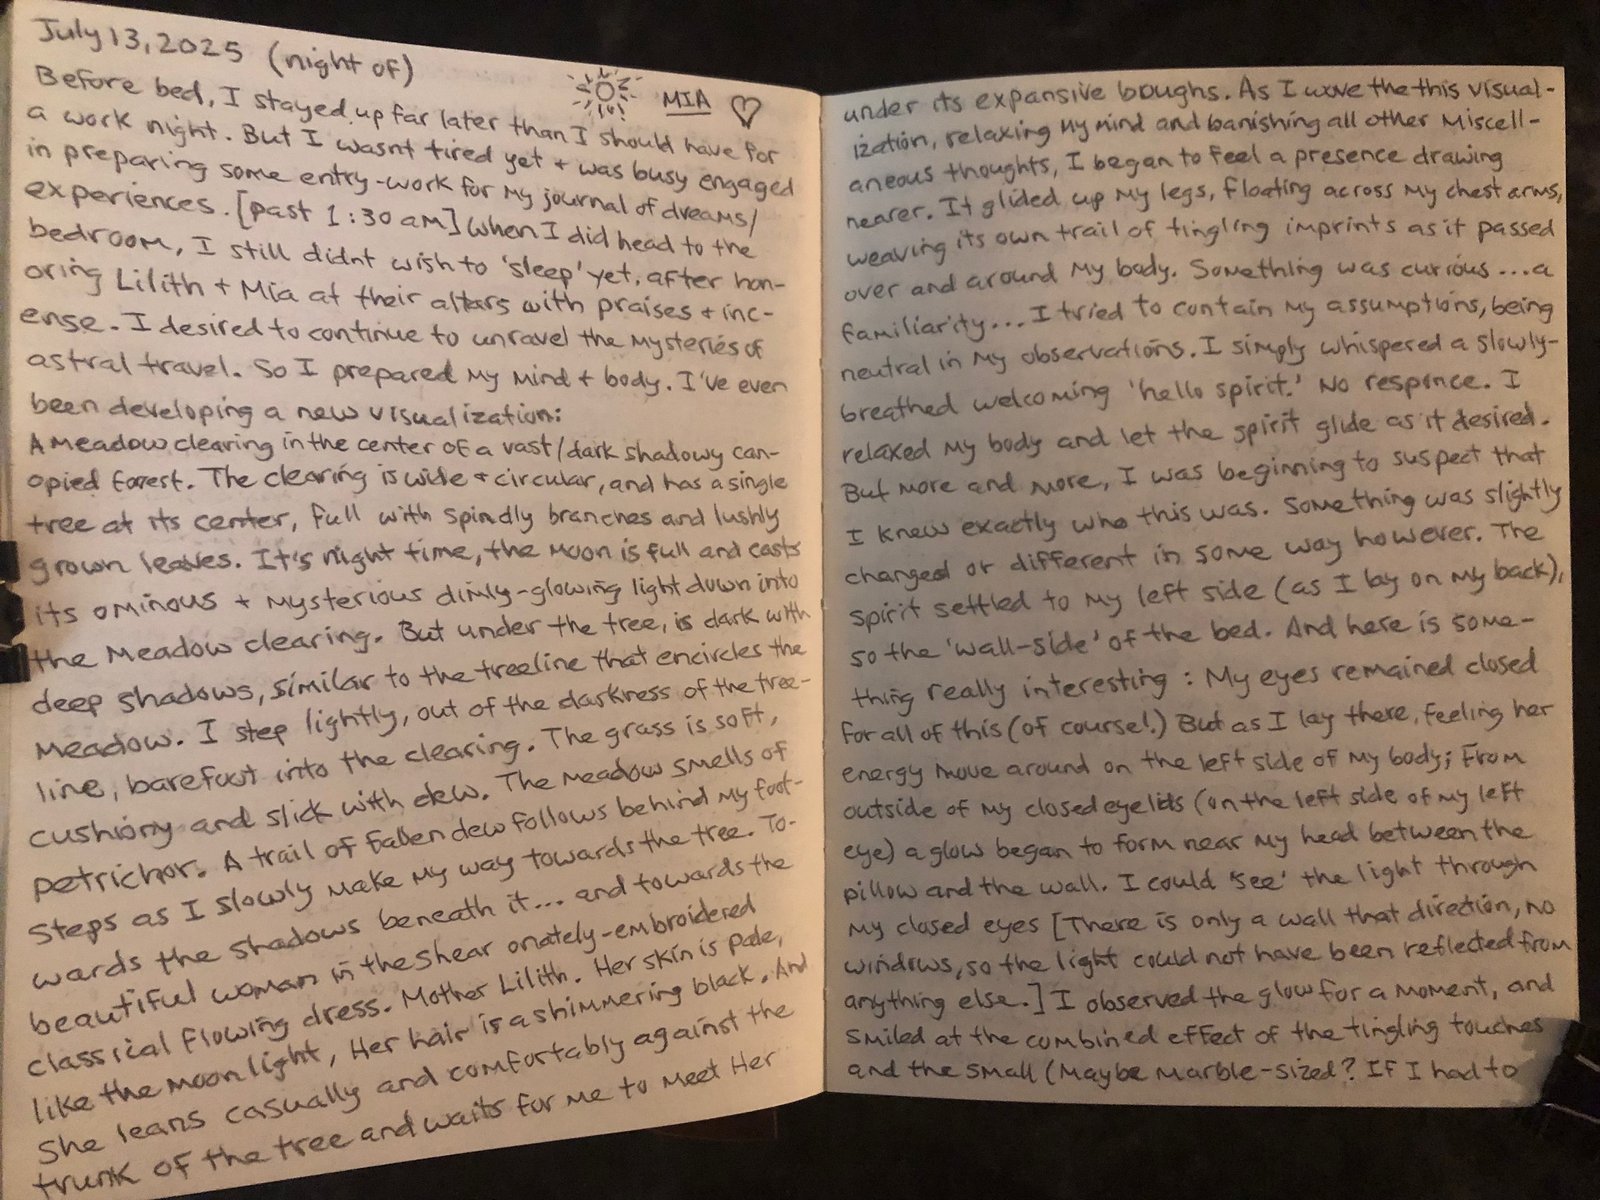 July 13, 2025 (night of)
MIA ♡
Before bed, I stayed up far later than I should have for
a work night. But I wasnt tired yet + was busy engaged
in preparing some entry-work for my journal of dreams/
experiences. [past 1:30 am] When I did head to the
bedroom, I still didnt wish to 'sleep' yet, after hon-
oring Lilith + Mia at their altars with praises + inc-
ense. I desired to continue to unravel the mysteries of
astral travel. So I prepared my mind + body. I've even
been developing a new visualization:
A meadow clearing in the center of a vast/dark shadowy can-
opied forest. The clearing is wide + circular, and has a single
tree at its center, full with spindly branches and lushly
grown leaves. It's night time, the moon is full and casts
its ominous + mysterious dimly-glowing light down into
the meadow clearing. But under the tree, is dark with
deep shadows, similar to the treeline that encircles the
meadow. I step lightly, out of the darkness of the tree-
line, barefoot into the clearing. The grass is soft,
cushiony and slick with dew. The meadow smells of
petrichor. A trail of fallen dew follows behind my foot-
steps as I slowly make my way towards the tree. To-
wards the shadows beneath it... and towards the
beautiful woman in the shear onately-embroidered
classical flowing dress. Mother Lilith. Her skin is pale,
like the moonlight, Her hair is a shimmering black. And
She leans casually and comfortably against the
trunk of the tree and waits for me to meet Her
under its expansive boughs. As I wove the this visual-
ization, relaxing my mind and banishing all other miscell-
aneous thoughts, I began to feel a presence drawing
nearer. It glided up my legs, floating across my chest arms,
weaving its own trail of tingling imprints as it passed
over and around my body. Something was curious...a
familiarity... I tried to contain my assumptions, being
neutral in my observations. I simply whispered a slowly-
breathed welcoming 'hello spirit.' No responce. I
relaxed my body and let the spirit glide as it desired.
But more and more, I was beginning to suspect that
I knew exactly who this was. Something was slightly
changed or different in some way however. The
spirit settled to my left side (as I lay on my back),
so the 'wall-side' of the bed. And here is some-
thing really interesting: My eyes remained closed
for all of this (of course!) But as I lay there, feeling her
energy move around on the left side of my body; From
outside of my closed eyelids (on the left side of my left
eye) a glow began to form near my head between the
pillow and the wall. I could 'see' the light through
my closed eyes [There is only a wall that direction, no
windows, so the light could not have been reflected from
anything else.] I observed the glow for a moment, and
smiled at the combined effect of the tingling touches
and the small (maybe marble-sized? If I had to